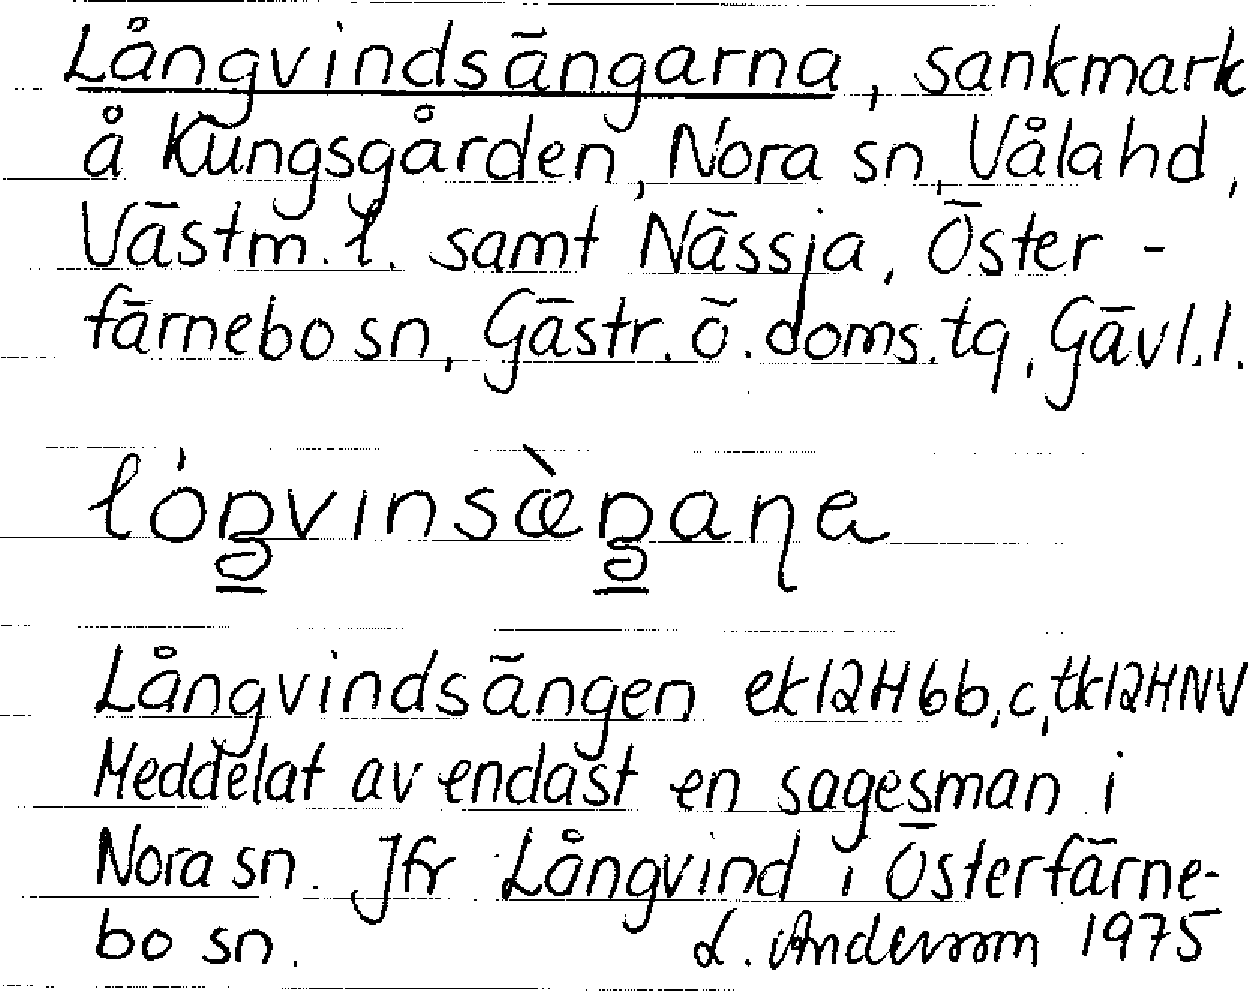 Långvindsängarna, sankmark
å Kungsgården, Nora sn, Våla hd,
Västm. l. samt Nässja, Öster-
färnebo sn, Gästr. ö. doms. tg, Gävl. l.
lóŋvinsæ̀ŋaɳa
Långvindsängen ek 12H6b,c, tk12HNV
Meddelat av endast en sagesman i
Nora sn. Jfr Långvind i Österfärne-
bo sn. L. Andersson 1975